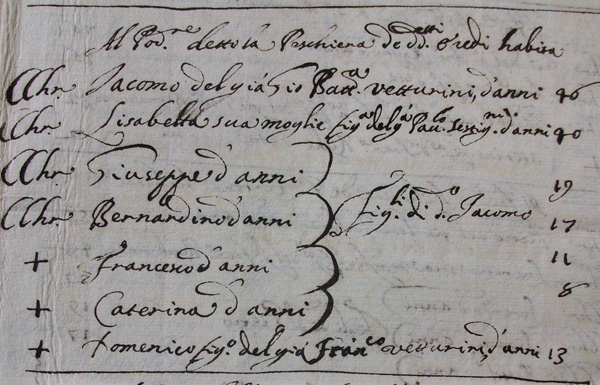 Al Pod.re detto la Peschiera de dd.etti Eredi habita
CChr. Jacomo del gia Gio Batt.a Vetturini, d'anni 46
Chr. Lisabetta sua moglie fig.a del g.a Pau.lo d'anni 40
CChr. Giuseppe d'anni 19
CChr. Bernardino d'anni 17
fig.li di d.o Jacomo
+ Francesco d'anni 11
+ Caterina d'anni 8
+ Domenico fig.o del gia Fran.co Vetturini, d'anni 13